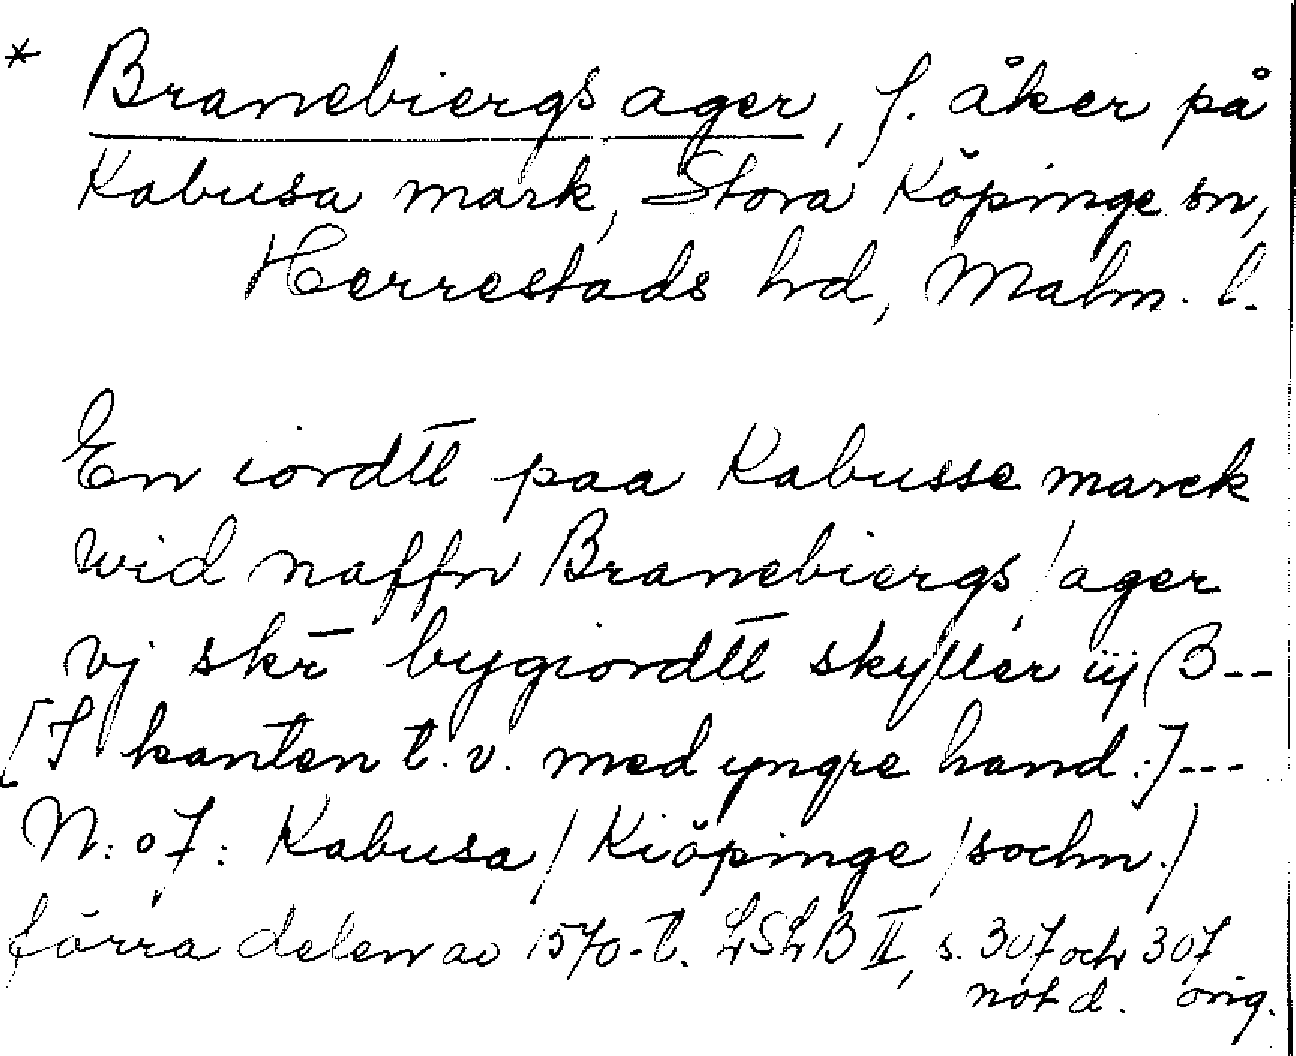 * Branebiergs ager, f. åker på
Kabusa mark, Stora Köpinge sn,
Herrestads hd, Malm. l.
En iordtt paa Kabusse marck
wid naffn Branebiergs / ager
vj skr bygiordtt skyller iij β--
[I kanten t.v. med yngre hand:]---
N:o 7: Kabusa / Kiöpinge / sochn./
förra delen av 1570-t. LSLB II, s. 307 och 307
not d. orig.